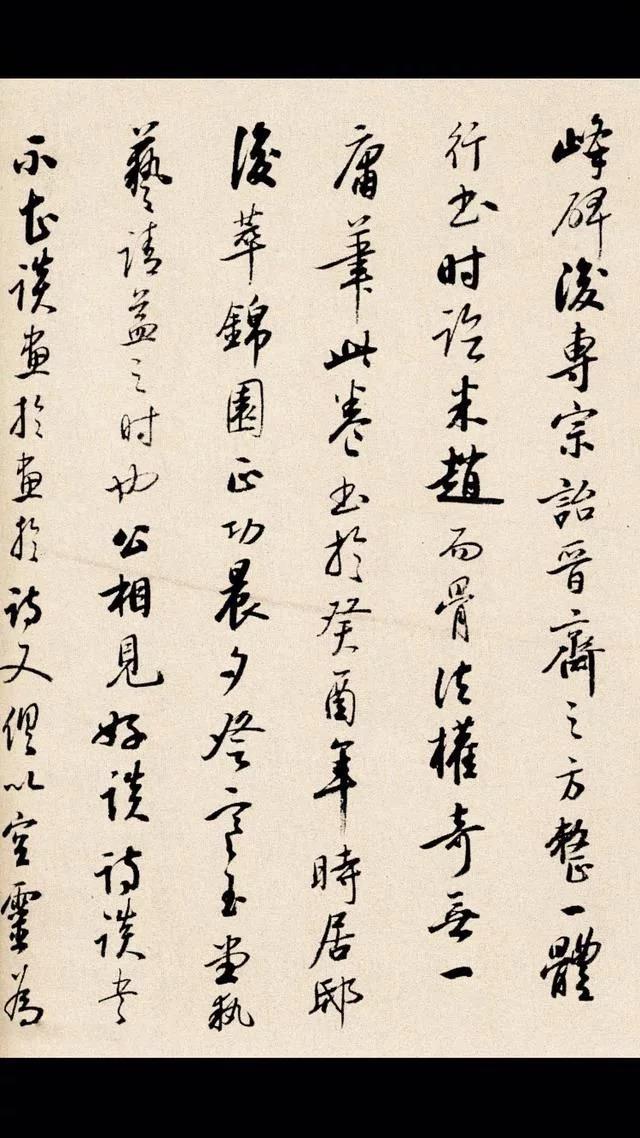 峰碑後專宗詒晉齋之方整一體
行书时米趙而骨法權奇無一
庸筆此卷书於癸酉年時居邸
後萃錦園正功晨夕登寒玉堂執
藝請益之时也公相見好談诗談书
不甚談畫於畫於诗又俱以空靈為